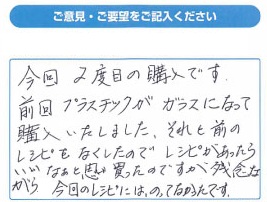 ご意見・ご要望をご記入ください
今回 2度目の購入です.
前回 プラスチックが ガラスになって
購入いたしました、それと前の
レシピをなくしたので レシピがあったら
いいなぁと思い買ったのですが残念な
がら 今回のレシピには、のってなかたです.